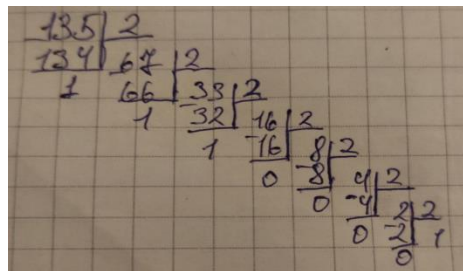 135 2
134 67 2
1 66 33 2
1 -32 16 2
1 -16 8 2
0 -8 4 2
0 -4 2 2
0 -2 1
0